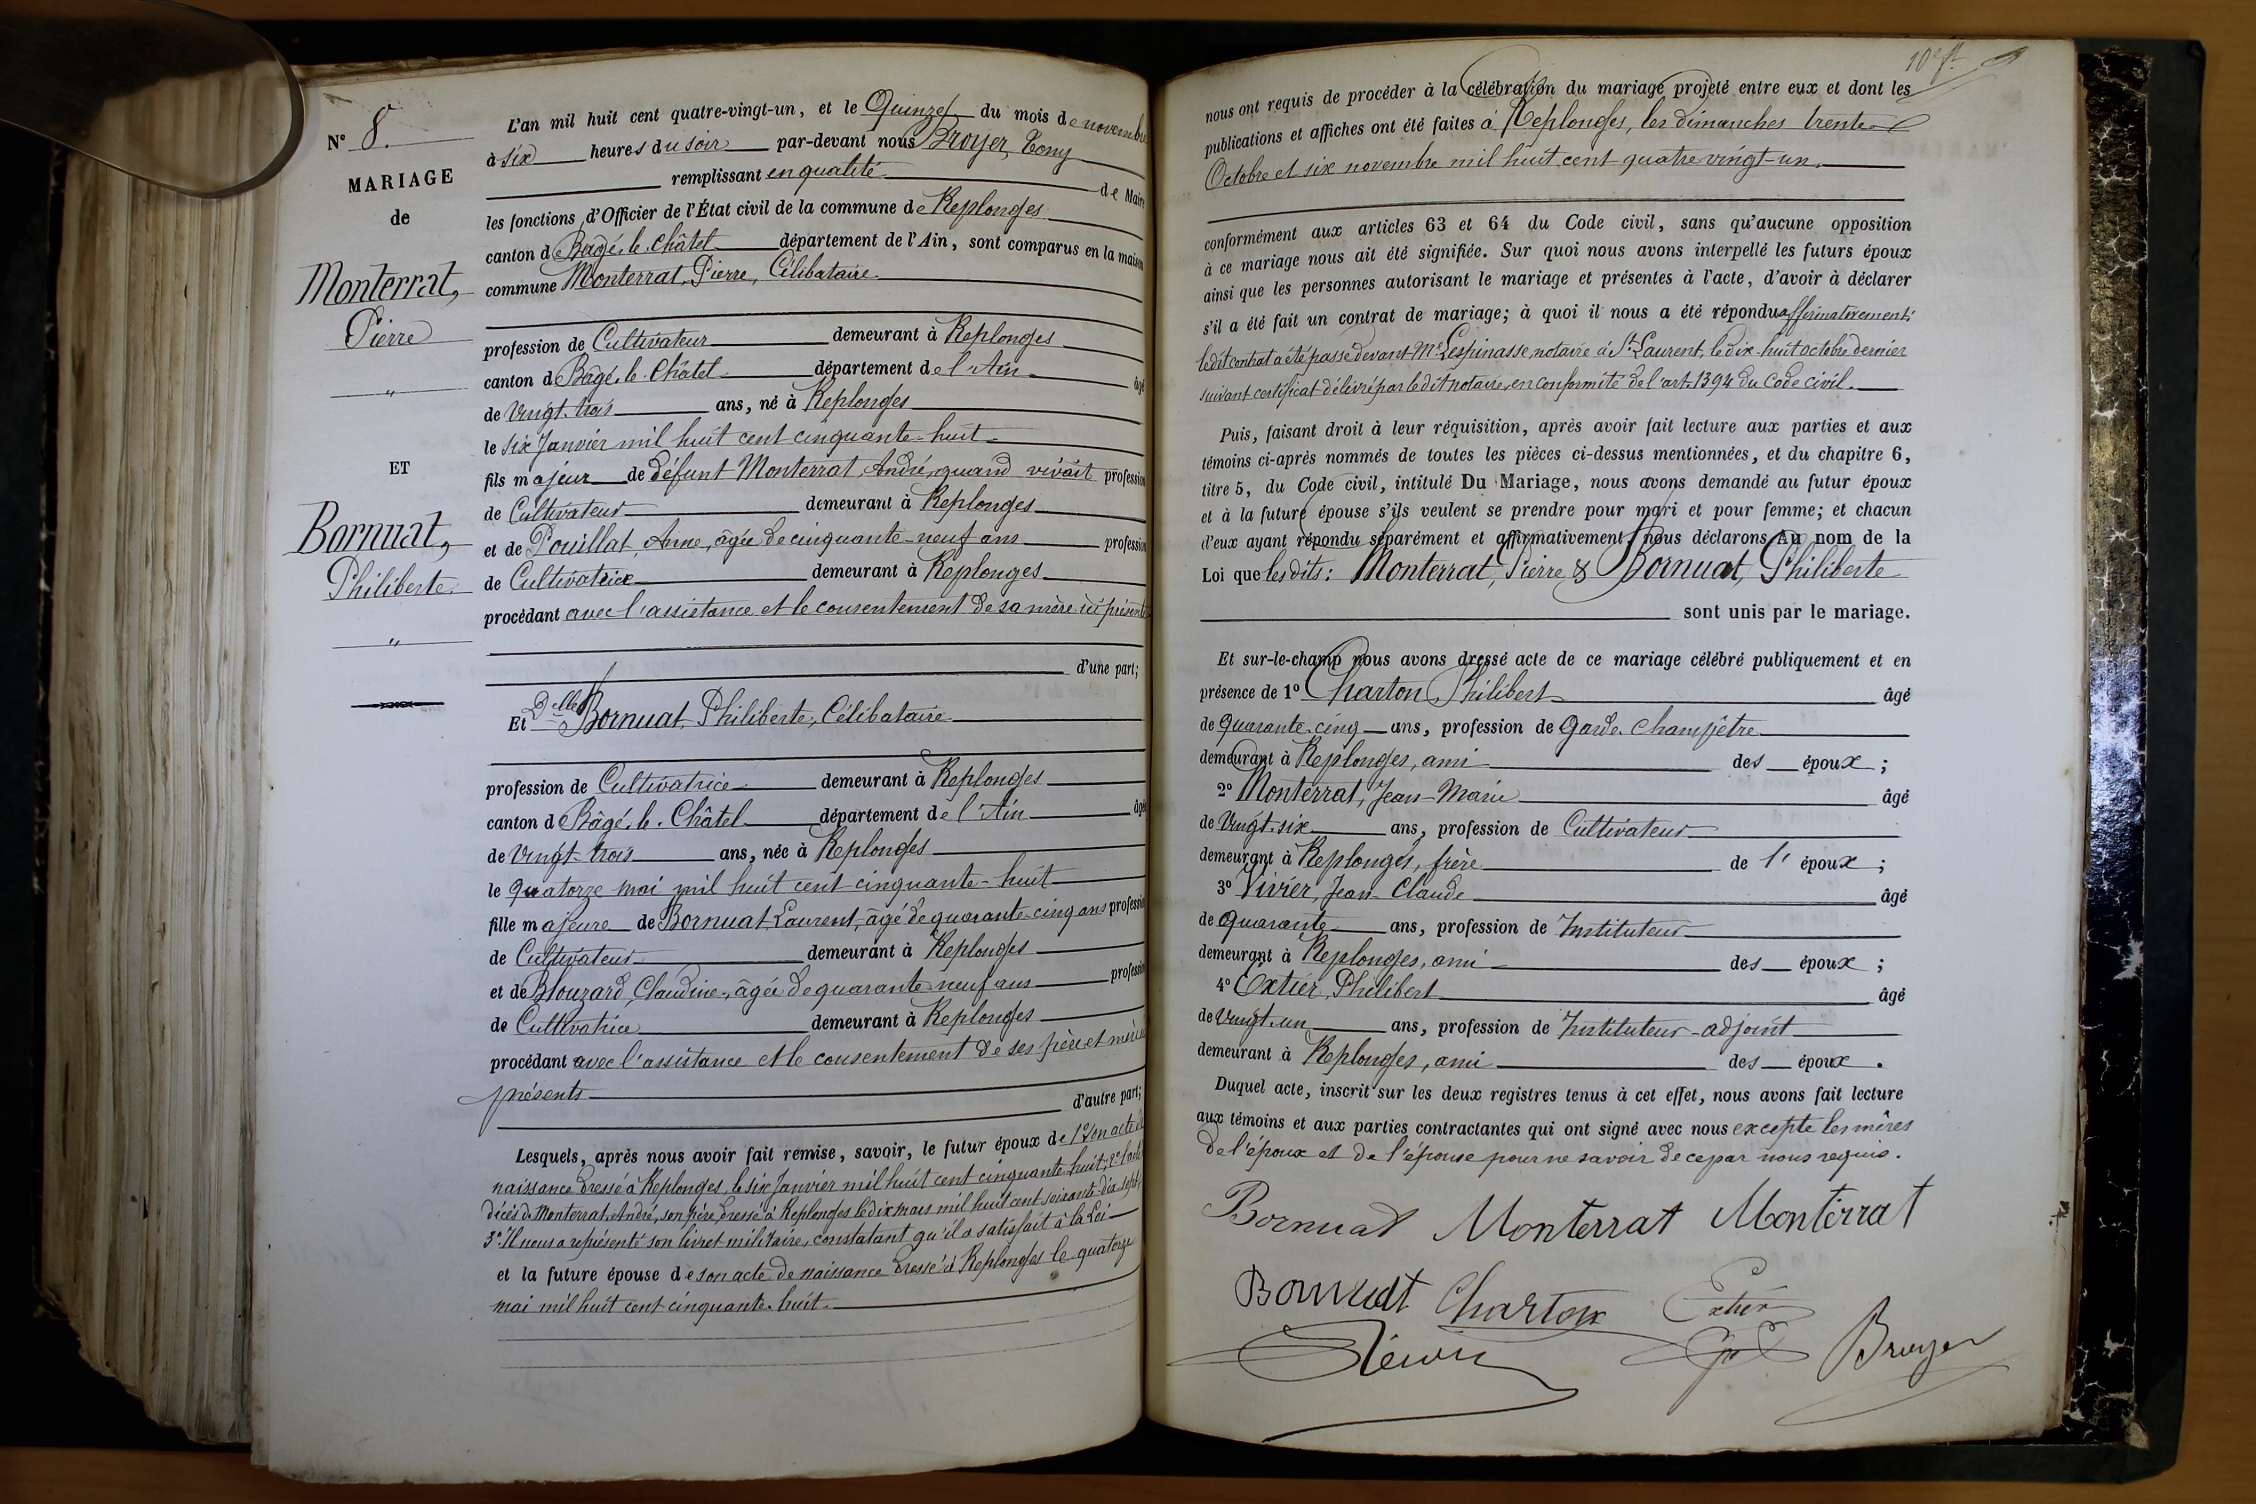 N° 8.
MARIAGE
de
Monterrat,
Pierre
"
ET
Bornuat,
Philiberte
"
L'an mil huit cent quatre-vingt-un, et le Quinze du mois de novembre
à six heures du soir par-devant nous Broyer, Tony
remplissant en qualité de Maire
les fonctions d'Officier de l'État civil de la commune de Replonges
canton de Bagé-le-Châtel département de l'Ain, sont comparus en la maison
commune Monterrat, Pierre, Célibataire
profession de Cultivateur demeurant à Replonges
canton de Bâgé-le-Châtel département de l'Ain âgé
de vingt-trois ans, né à Replonges
le six Janvier mil huit cent cinquante-huit
fils majeur de défunt Monterrat, André, quand vivait profession
de Cultivateur demeurant à Replonges
et de Pouillat, Anne, âgée de cinquante-neuf ans profession
de Cultivatrice demeurant à Replonges
procédant avec l'assistance et le consentement de sa mère ici présente
d'une part;
Et Delle Bornuat, Philiberte, Célibataire
profession de Cultivatrice demeurant à Replonges
canton de Bâgé-le-Châtel département de l'Ain âgée
de vingt-trois ans, née à Replonges
le quatorze mai mil huit cent cinquante-huit
fille majeure de Bornuat, Laurent, âgé de quarante-cinq ans profession
de Cultivateur demeurant à Replonges
et de Blouzard, Claudine, âgée de quarante-neuf ans profession
de Cultivatrice demeurant à Replonges
procédant avec l'assistance et le consentement de ses père et mère
présents
d'autre part;
Lesquels, après nous avoir fait remise, savoir, le futur époux de 1° Son acte de
naissance dressé à Replonges, le six Janvier mil huit cent cinquante-huit; 2° l'acte
décès de Monterrat, André, son père, dressé à Replonges le dix mars mil huit cent soixante-dix-sept,
3° Il nous a représenté son livret militaire, constatant qu'il a satisfait à la Loi
et la future épouse de son acte de naissance dressé à Replonges le quatorze
mai mil huit cent cinquante-huit.
nous ont requis de procéder à la célébration du mariage projeté entre eux et dont les
publications et affiches ont été faites à Replonges, les dimanches trente
Octobre et six novembre mil huit cent quatre vingt-un.
conformément aux articles 63 et 64 du Code civil, sans qu'aucune opposition
à ce mariage nous ait été signifiée. Sur quoi nous avons interpellé les futurs époux
ainsi que les personnes autorisant le mariage et présentes à l'acte, d'avoir à déclarer
s'il a été fait un contrat de mariage; à quoi il nous a été répondu affirmativement;
ledit contrat a été passé devant Me Lespinasse, notaire à St. Laurent, le dix-huit octobre dernier
suivant certificat délivré par ledit notaire, en conformité de l'art. 1394 du Code civil.
Puis, faisant droit à leur réquisition, après avoir fait lecture aux parties et aux
témoins ci-après nommés de toutes les pièces ci-dessus mentionnées, et du chapitre 6,
titre 5, du Code civil, intitulé Du Mariage, nous avons demandé au futur époux
et à la future épouse s'ils veulent se prendre pour mari et pour femme; et chacun
d'eux ayant répondu séparément et affirmativement, nous déclarons Au nom de la
Loi que lesdits: Monterrat, Pierre & Bornuat, Philiberte
sont unis par le mariage.
Et sur-le-champ nous avons dressé acte de ce mariage célébré publiquement et en
présence de 1° Charton, Philibert âgé
de quarante-cinq ans, profession de Garde-Champêtre
demeurant à Replonges, ami des époux;
2° Monterrat, Jean-Marie âgé
de vingt-six ans, profession de Cultivateur
demeurant à Replonges, frère de l'époux;
3° Vivier, Jean-Claude âgé
de quarante ans, profession de Instituteur
demeurant à Replonges, ami des époux;
4° Extier, Philibert âgé
de vingt-un ans, profession de Instituteur-adjoint
demeurant à Replonges, ami des époux.
Duquel acte, inscrit sur les deux registres tenus à cet effet, nous avons fait lecture
aux témoins et aux parties contractantes qui ont signé avec nous excepté les mères
de l'époux et de l'épouse pour ne savoir de ce par nous requis.
Bornuat Monterrat Monterrat
Bornuat Charton Extier
Broyer